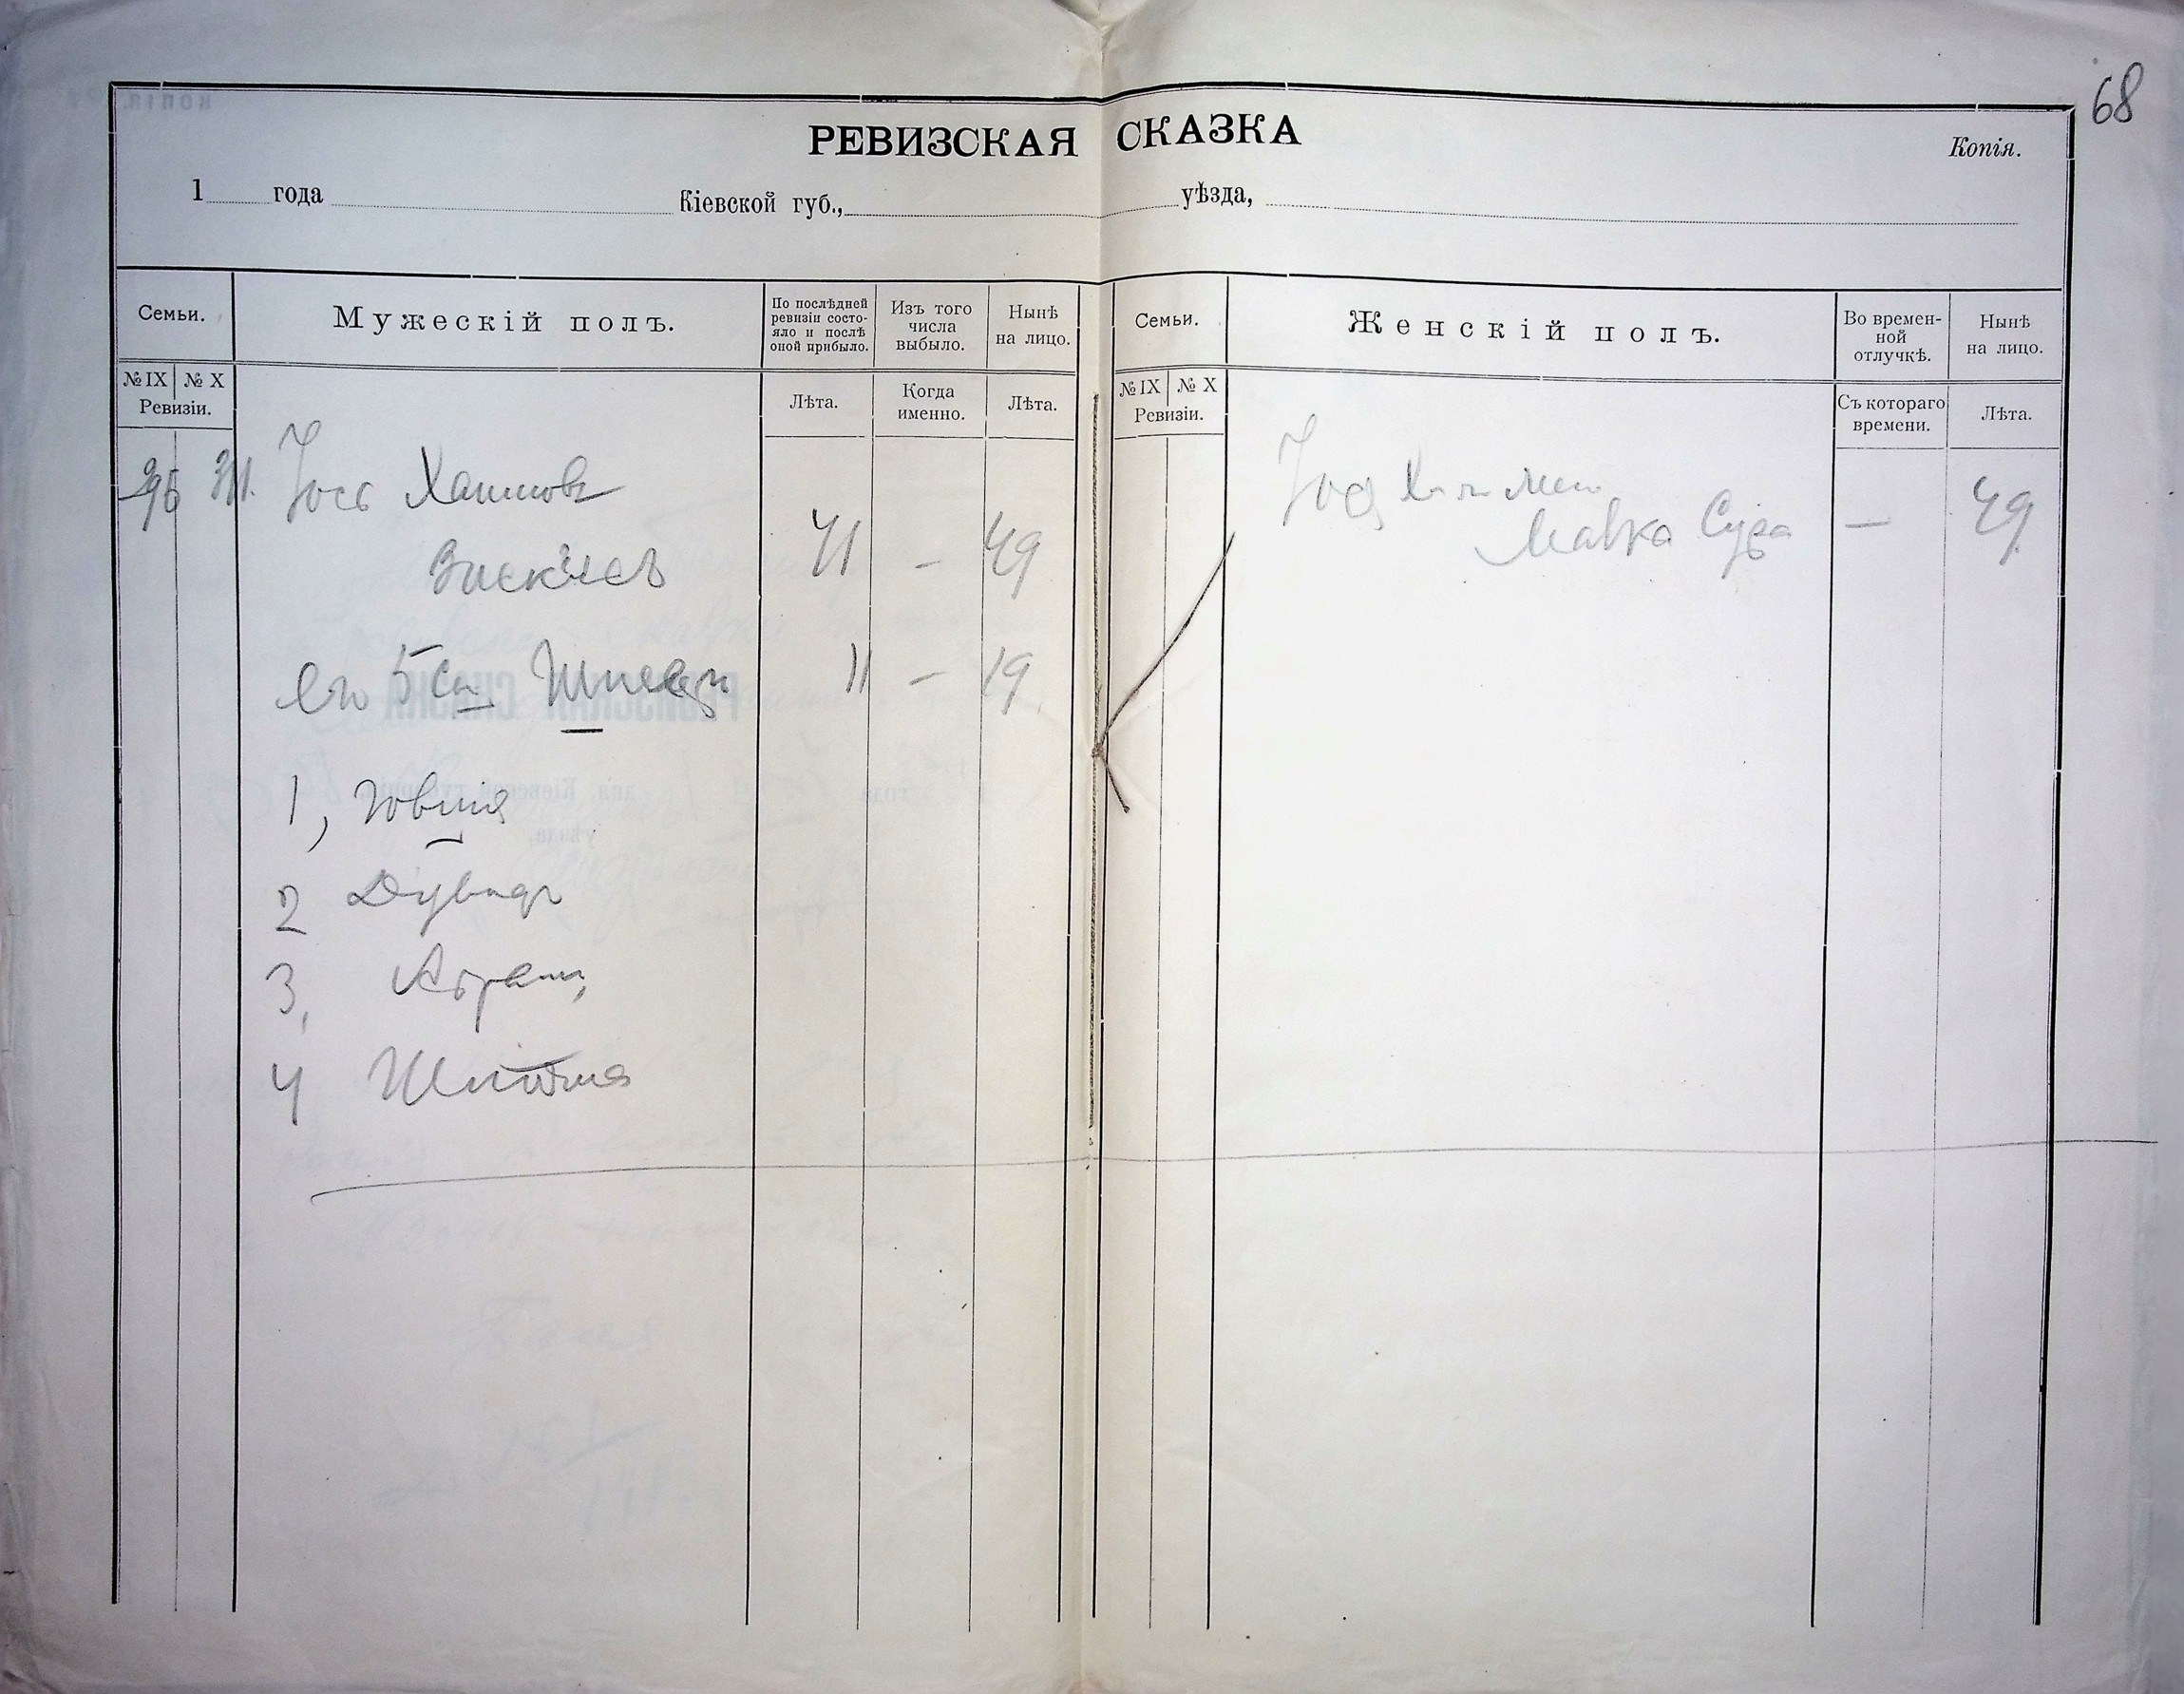 68
РЕВИЗСКАЯ СКАЗКА
Копія.
1 года Кіевской губ., уѣзда,
Семьи. Мужескій полъ. По послѣдней ревизіи состо-яло и послѣ оной прибыло. Изъ того числа выбыло. Нынѣ на лицо. Семьи. Женскій полъ. Во времен-ной отлучкѣ. Нынѣ на лицо.
№ IX № X Ревизіи. Лѣта. Когда именно. Лѣта. № IX № X Ревизіи. Съ котораго времени. Лѣта.
Іось Хаимовъ
41 - 49
Сура — 49
Его 5 сы 11 - 19
1, Іовша
2 Дувидъ
3, Абрамъ
4 Шліома